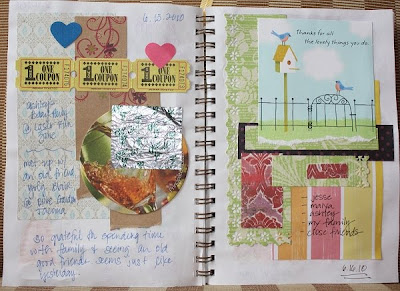 6.13.2010
1 ONE COUPON 1 ONE COUPON 1 ONE COUPON
ashley's
bday party
@ laser fun
zone
met up w/
an old friend
@ blue
tacoma
so grateful for spending time
w/ family & seems an old
good friends seems just like
yesterday.
Thanks for all
the lovely things you do.
- jesse
- maiya
- ashley
- my family
- close friends
6.16.10